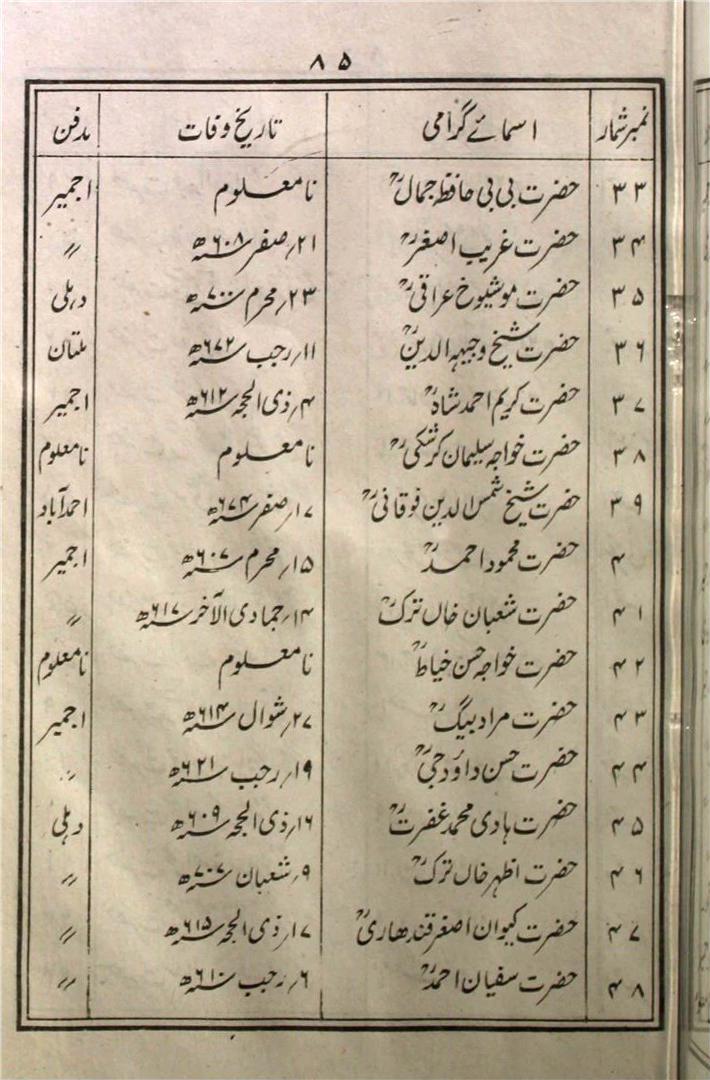 ۸۵
نمبر شمار اسمائے گرامی تاریخ وفات مدفن
۳۳ حضرت بی بی حافظ جمالؒ نامعلوم اجمیر
۳۴ حضرت غریب اصغرؒ ۲۱؍ صفر ۶۰۸ھ 〃
۳۵ حضرت موشیوخ عراقیؒ ۲۳؍ محرم ۷۰۰ھ دہلی
۳۶ حضرت شیخ وجیہہ الدینؒ ۱۱؍ رجب ۶۷۲ھ ملتان
۳۷ حضرت کریم احمد شاہؒ ۴؍ ذی الحجہ ۶۱۲ھ اجمیر
۳۸ حضرت خواجہ سلیمان کرتکیؒ نامعلوم نامعلوم
۳۹ حضرت شیخ شمس الدین فوقانیؒ ۱۷؍ صفر ۶۷۴ھ احمدآباد
۴ حضرت محمود احمدؒ ۱۵؍ محرم ۶۰۷ھ اجمیر
۴۱ حضرت شعبان خاں ترکؒ ۱۴؍ جمادی الآخر ۶۱۷ھ 〃
۴۲ حضرت خواجہ حسن خیاطؒ نامعلوم نامعلوم
۴۳ حضرت مراد بیگؒ ۲۷؍ شوال ۶۱۴ھ اجمیر
۴۴ حضرت حسن داؤد جیؒ ۱۹؍ رجب ۶۲۱ھ 〃
۴۵ حضرت ہادی محمد غفرتؒ ۱۶؍ ذی الحجہ ۶۰۹ھ دہلی
۴۶ حضرت اظہر خاں ترکؒ ۹؍ شعبان ۷۰۷ھ 〃
۴۷ حضرت کیوان اصغر قندھاریؒ ۱۷؍ ذی الحجہ ۶۱۵ھ 〃
۴۸ حضرت سفیان احمدؒ ۶؍ رجب ۶۱۰ھ 〃